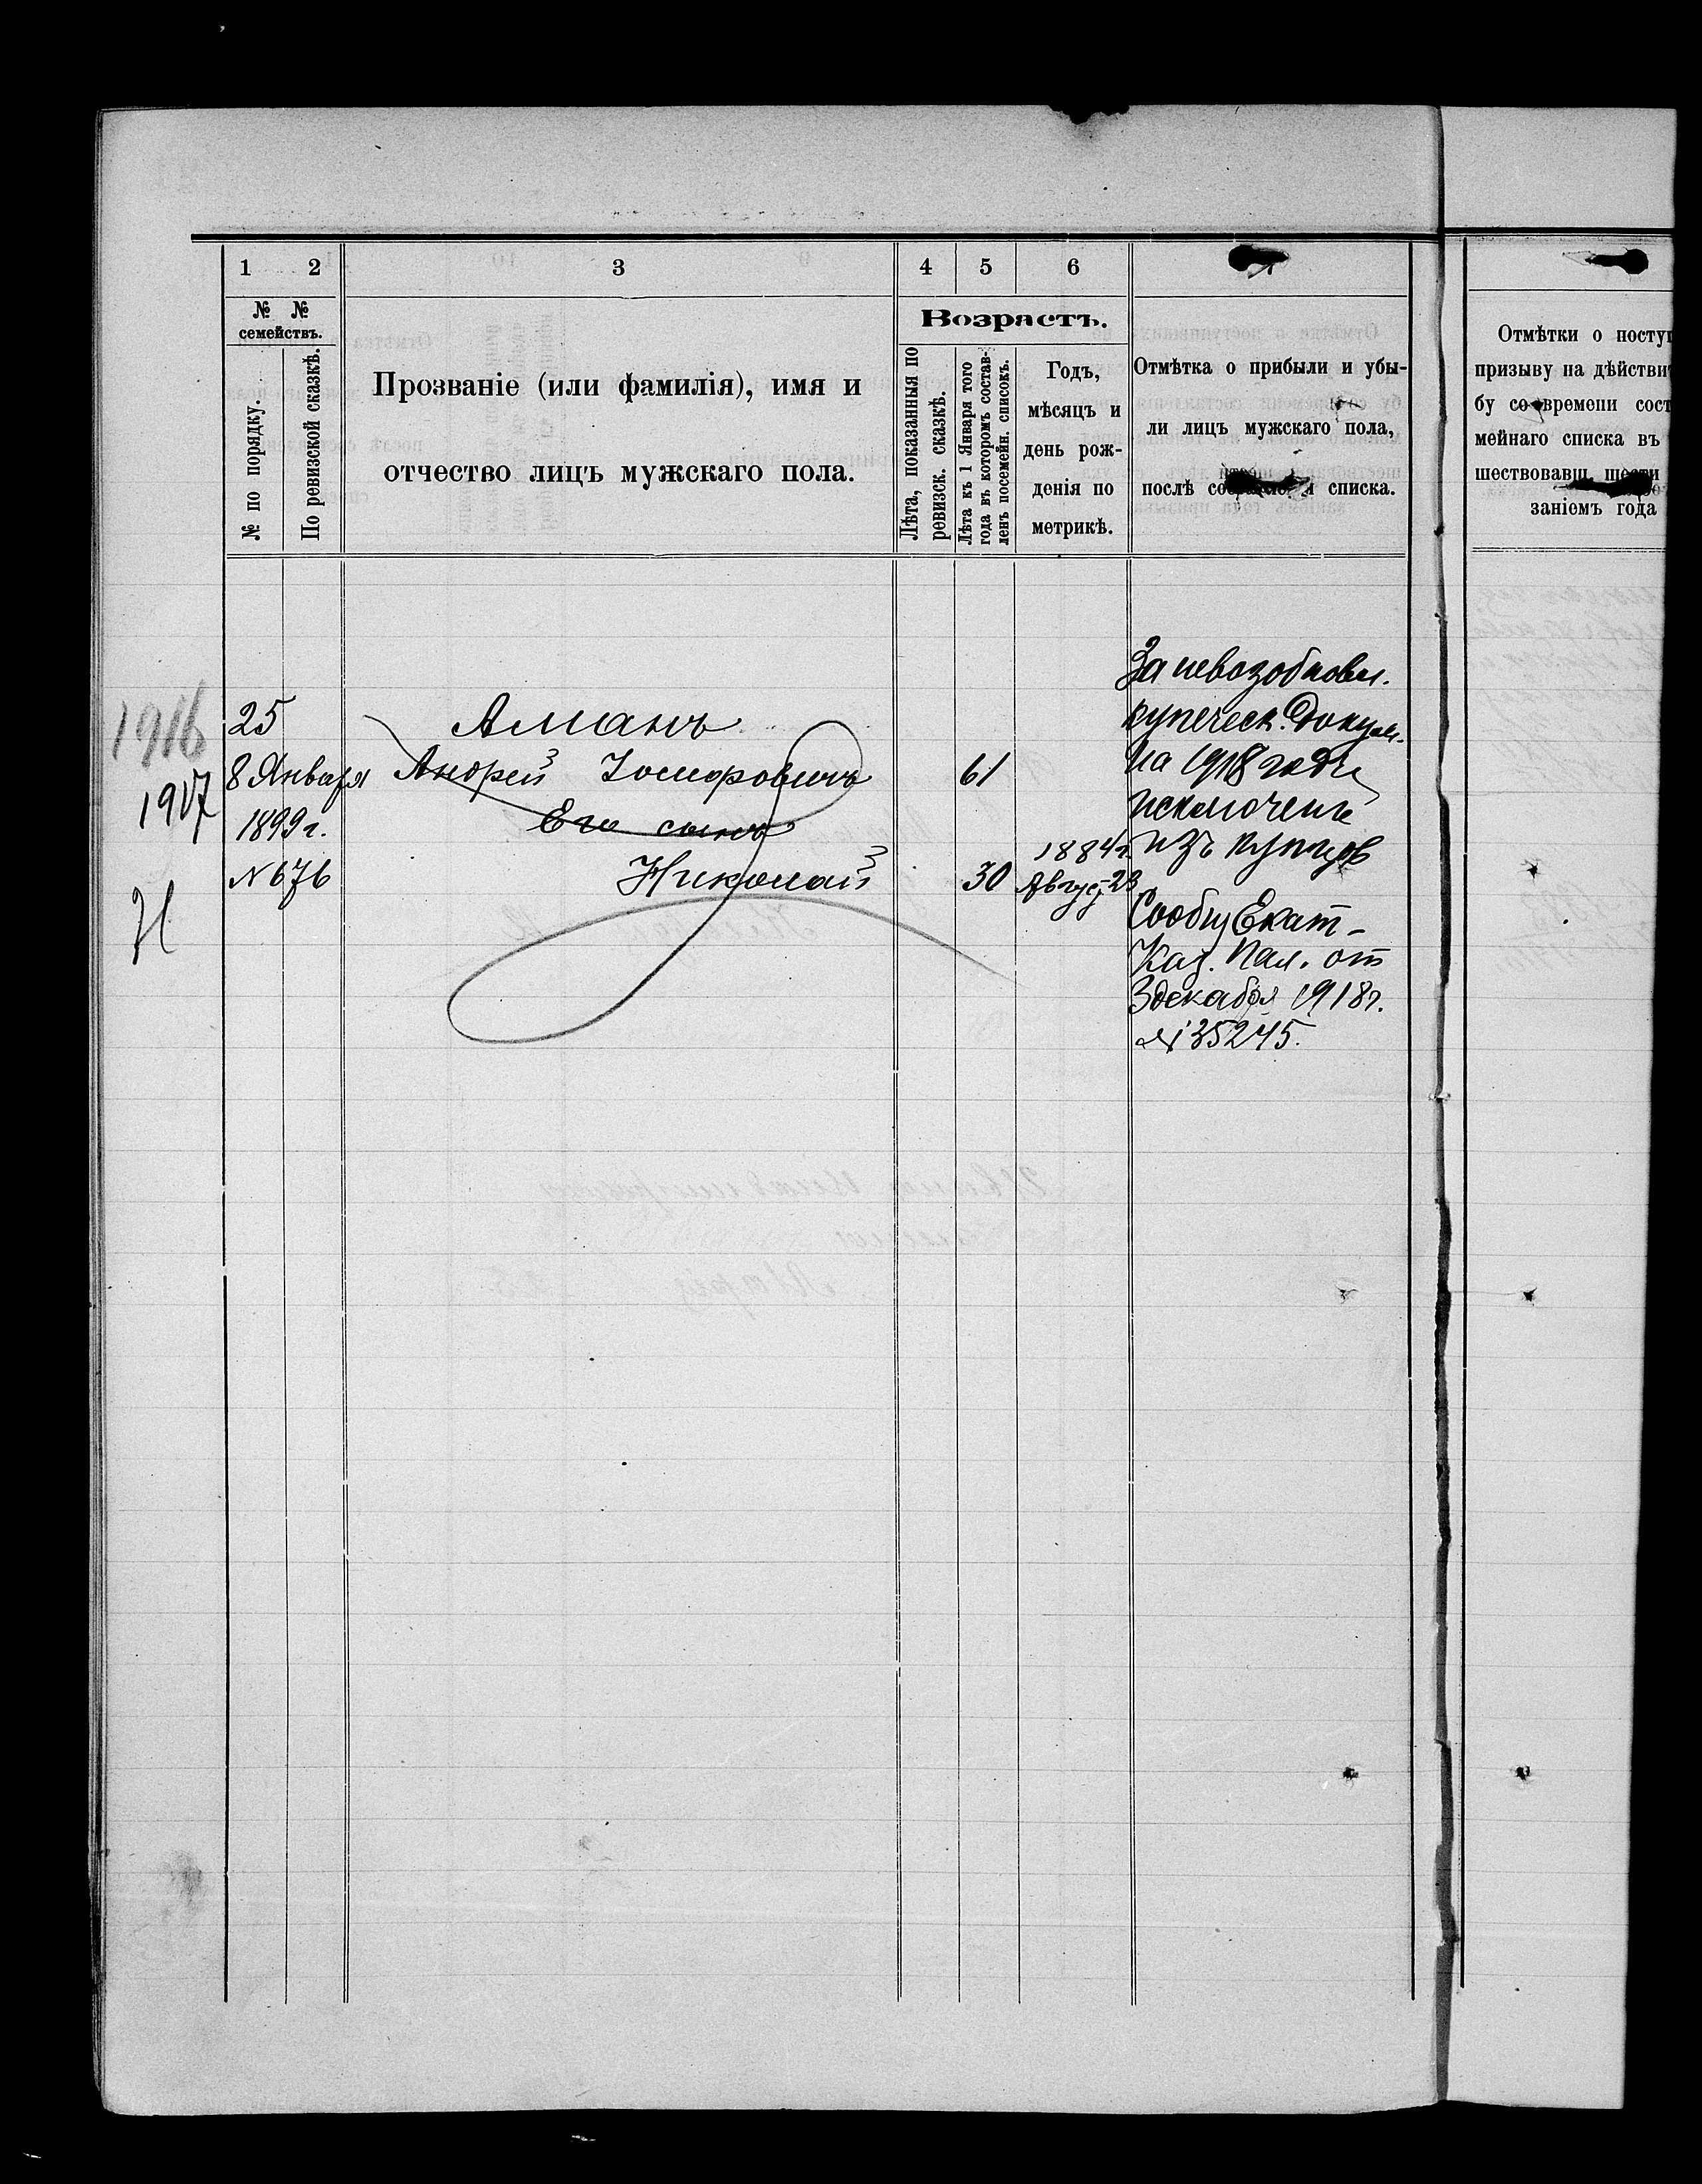 1 2 3 4 5 6
№ № семействъ.
№ по порядку.
По ревизской сказкѣ.
Прозваніе (или фамилія), имя и
отчество лицъ мужскаго пола.
Возрастъ.
Лѣта, показанныя по
ревизск. сказкѣ.
Лѣта къ 1 Января того
года въ которомъ состав-
ленъ посемейн. списокъ.
Годъ,
мѣсяцъ и
день рож-
денія по
метрикѣ.
Отмѣтка о прибыли и убы-
ли лицъ мужскаго пола,
послѣ списка.
Отмѣтки о посту
призыву на дѣйстви
бу со времени сост
мейнаго списка въ
шествовавш. шести
заніемъ года
1916
1917
Н
25
8 Января
1899 г.
№ 676
Аманъ
Андрей
61
Его сынъ
Николай
30
1884 г.
Август 23
За невозобновл.
купеческ. докум.
на 1918 годъ
исключенъ
изъ купцов
Сообщ Екат-
Каз. Пал. от
3 декабря 1918 г.
№ 35245.